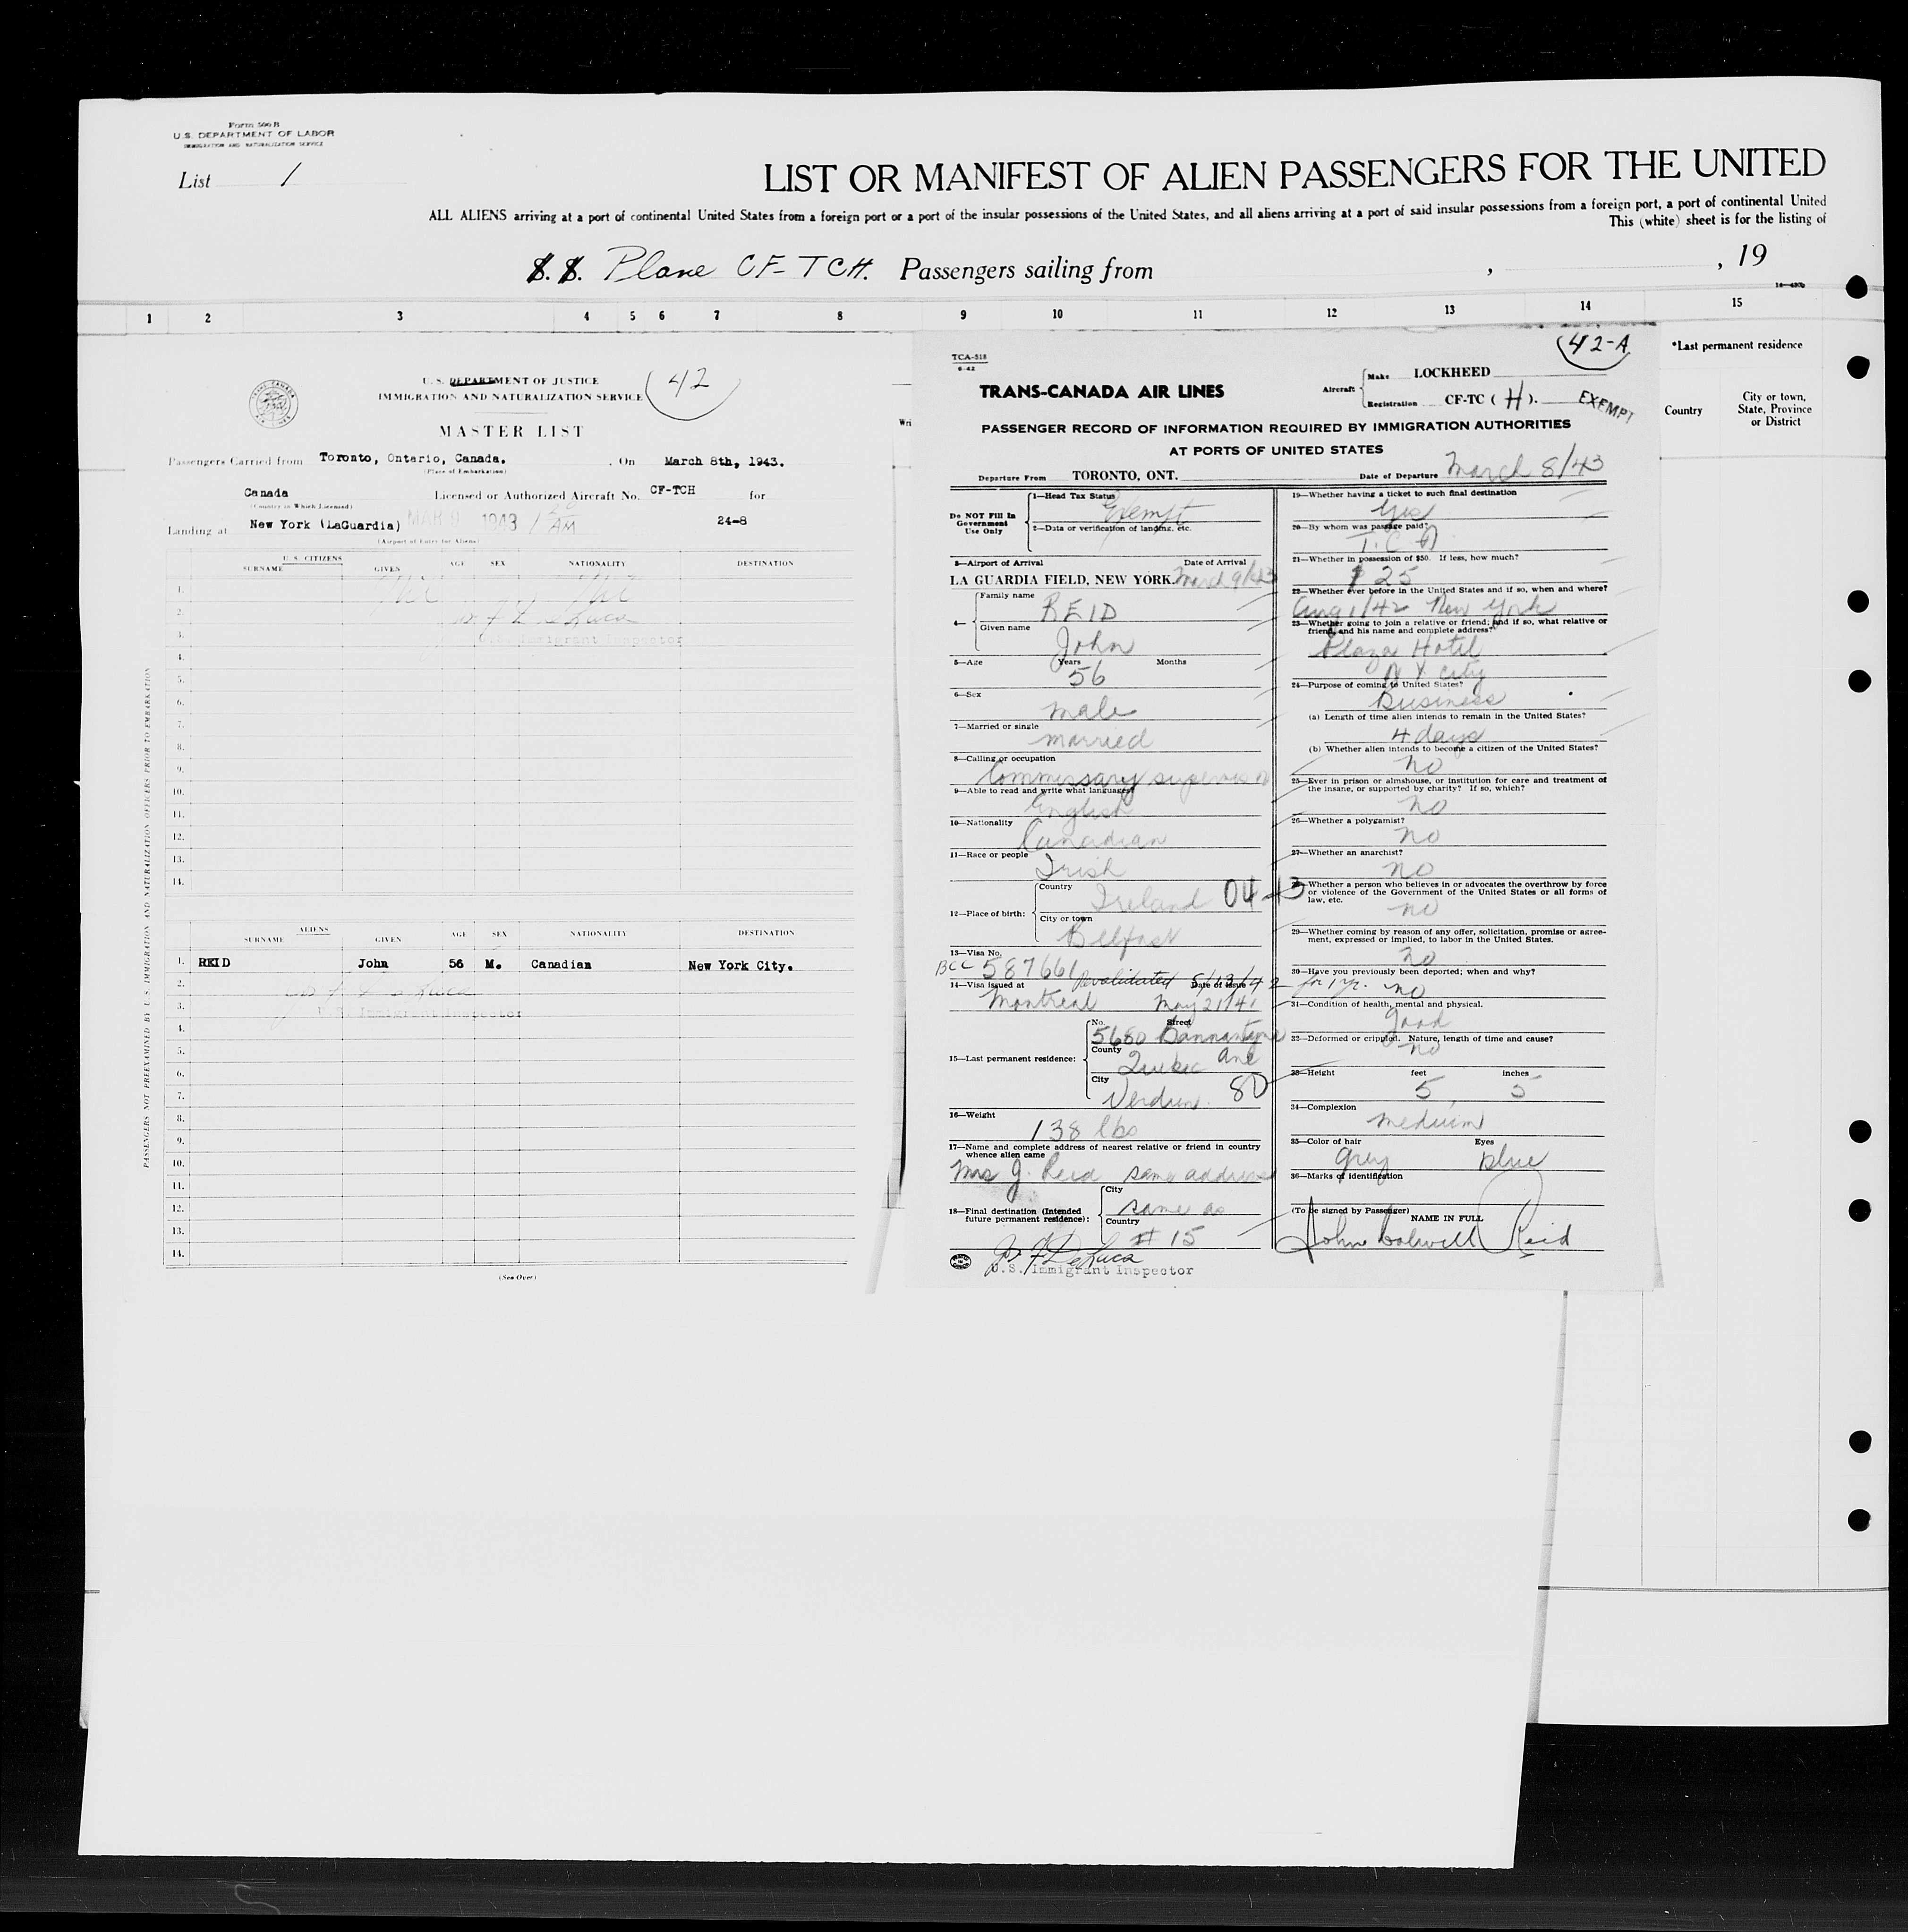 Form 500 B
U.S. DEPARTMENT OF LABOR
IMMIGRATION AND NATURALIZATION SERVICE
List 1
LIST OR MANIFEST OF ALIEN PASSENGERS FOR THE UNITED
ALL ALIENS arriving at a port of continental United States from a foreign port or a port of the insular possessions of the United States, and all aliens arriving at a port of said insular possessions from a foreign port, a port of continental United
This (white) sheet is for the listing of
S. S. Plane CF-TCH. Passengers sailing from , , 19
1 2 3 4 5 6 7 8 9 10 11 12 13 14 15
*Last permanent residence
Country
City or town, State, Province or District
Wri
U. S. DEPARTMENT OF JUSTICE
IMMIGRATION AND NATURALIZATION SERVICE
42
MASTER LIST
Passengers Carried from Toronto, Ontario, Canada. . On March 8th, 1943.
(Place of Embarkation)
Canada Licensed or Authorized Aircraft No. CF-TCH for
(Country in Which Licensed)
Landing at New York (LaGuardia) MAR 9 1943 AM 24-8
(Airport of Entry for Aliens)
U. S. CITIZENS
SURNAME GIVEN AGE SEX NATIONALITY DESTINATION
1.
2.
3.
U.S. Immigrant Inspector
4.
5.
6.
7.
8.
9.
10.
11.
12.
13.
14.
ALIENS
SURNAME GIVEN AGE SEX NATIONALITY DESTINATION
1. REID John 56 M. Canadian New York City.
2.
3.
U.S. Immigrant Inspector
4.
5.
6.
7.
8.
9.
10.
11.
12.
13.
14.
(See Over)
PASSENGERS NOT PREEXAMINED BY U. S. IMMIGRATION AND NATURALIZATION OFFICERS PRIOR TO EMBARKATION
42-A
TCA-518
6-42
TRANS-CANADA AIR LINES
Aircraft
Make LOCKHEED
Registration CF-TC ( H ).
EXEMPT
PASSENGER RECORD OF INFORMATION REQUIRED BY IMMIGRATION AUTHORITIES
AT PORTS OF UNITED STATES
Departure From TORONTO, ONT. Date of Departure March 8/43
Do NOT Fill In Government Use Only
1—Head Tax Status
Exempt
2—Data or verification of landing, etc.
3—Airport of Arrival Date of Arrival
LA GUARDIA FIELD, NEW YORK. March 9/43
4—
Family name
REID
Given name
John
5—Age Years Months
56
6—Sex
male
7—Married or single
married
8—Calling or occupation
Commissary supervisor
9—Able to read and write what languages
English
10—Nationality
Canadian
11—Race or people
Irish
12—Place of birth:
Country
Ireland 04-43
City or town
Belfast
13—Visa No.
BCC 587661 Revalidated 5/13/42 for 1 yr.
14—Visa issued at Date of issue
Montreal May 21/41
15—Last permanent residence:
No. Street
5680 Bannantyne
County
Quebec Ave
City
Verdun. 80
16—Weight
138 lbs
17—Name and complete address of nearest relative or friend in country
whence alien came
Mrs J. Reid same address
18—Final destination (Intended future permanent residence):
City
same as
Country
# 15
J. F. DeLuca
U.S. Immigrant Inspector
19—Whether having a ticket to such final destination
Yes
20—By whom was passage paid?
T.C.A
21—Whether in possession of $50. If less, how much?
$25
22—Whether ever before in the United States and if so, when and where?
Aug 1/42 New York
23—Whether going to join a relative or friend; and if so, what relative or
friend, and his name and complete address?
Plaza Hotel
N Y City
24—Purpose of coming to United States?
Business
(a) Length of time alien intends to remain in the United States?
4 days
(b) Whether alien intends to become a citizen of the United States?
no
25—Ever in prison or almshouse, or institution for care and treatment of
the insane, or supported by charity? If so, which?
no
26—Whether a polygamist?
no
27—Whether an anarchist?
no
Whether a person who believes in or advocates the overthrow by force
or violence of the Government of the United States or all forms of
law, etc.
no
29—Whether coming by reason of any offer, solicitation, promise or agree-
ment, expressed or implied, to labor in the United States.
no
30—Have you previously been deported; when and why?
no
31—Condition of health, mental and physical.
good
32—Deformed or crippled. Nature, length of time and cause?
no
33—Height feet inches
5 5
34—Complexion
medium
35—Color of hair Eyes
grey blue
36—Marks of identification
(To be signed by Passenger)
NAME IN FULL
John Colwill Reid